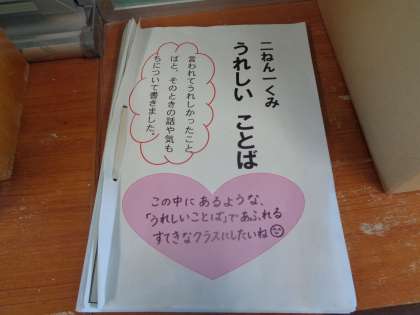 二ねん一くみ
うれしい ことば
言われてうれしかったこと
ばと、そのときの話や気も
ちについて書きました。
この中に あるような、
「うれしいことば」であふれる
すてきなクラスにしたいね